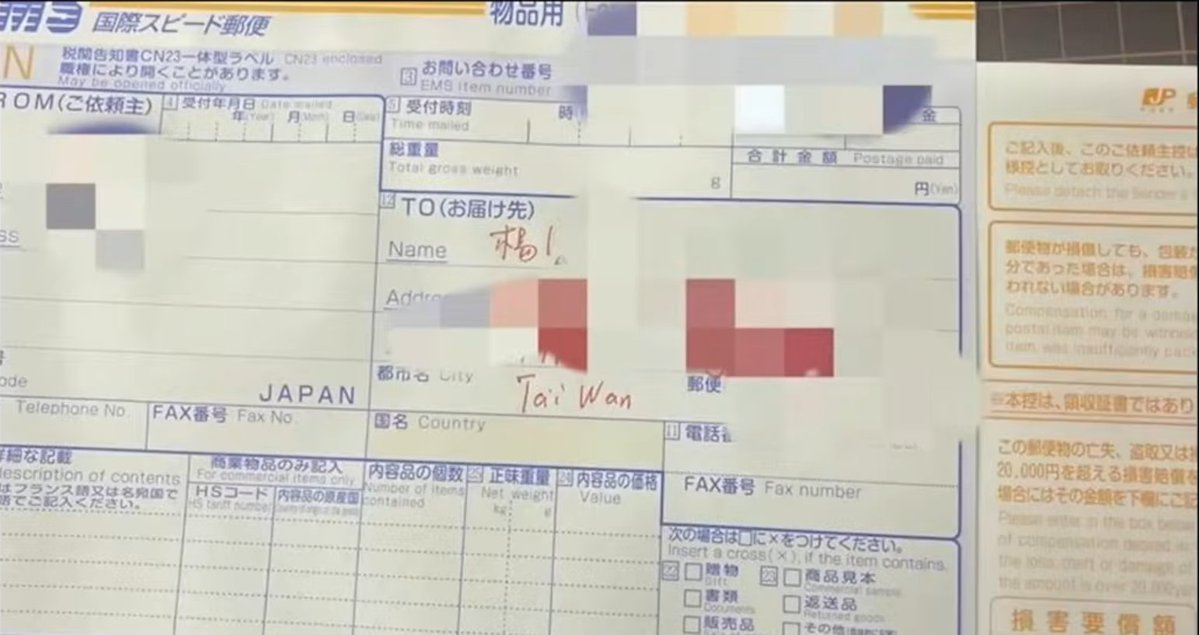 EMS 国際スピード郵便
物品用
税関告知書CN23一体型ラベル CN23 enclosed
職権により開くことがあります。
May be opened officially
3 お問い合わせ番号
EMS item number
ROM(ご依頼主)
4 受付年月日 Date mailed
年(Year) 月(Month) 日(Day)
5 受付時刻
Time mailed
時
金
総重量
Total gross weight
g
合計金額 Postage paid
円(Yen)
12 TO(お届け先)
Name 楊
都市名 City
Tai Wan
郵便
JAPAN
Telephone No.
FAX番号 Fax No.
国名 Country
11 電話
FAX番号 Fax number
詳細な記載
description of contents
はフランス語又は名宛国で
語でご記入ください。
商業物品のみ記入
For commercial items only
HSコード
HS tariff number
内容品の原産国
内容品の個数
Number of items
contained
25 正味重量
Net weight
kg g
24 内容品の価格
Value
次の場合は□に×をつけてください。
Insert a cross(×), if the item contains.
22 贈物
Gift
書類
Documents
販売品
23 商品見本
Commercial sample
返送品
Returned goods
その他
JP
ご記入後、このご依頼主控は
様控としてお取りください。
Please detach the sender's
郵便物が損傷しても、包装が
分であった場合は、損害賠償
われない場合があります。
Compensation for a damaged
postal item may be withheld
item was insufficiently pack
※本控は、領収証書ではあり
この郵便物の亡失、盗取又は
20,000円を超える損害賠償を
場合にはその金額を下欄にご記
Please enter in the box below
of compensation desired in
the loss, theft or damage of
the amount is over 20,000yen
損害要償額